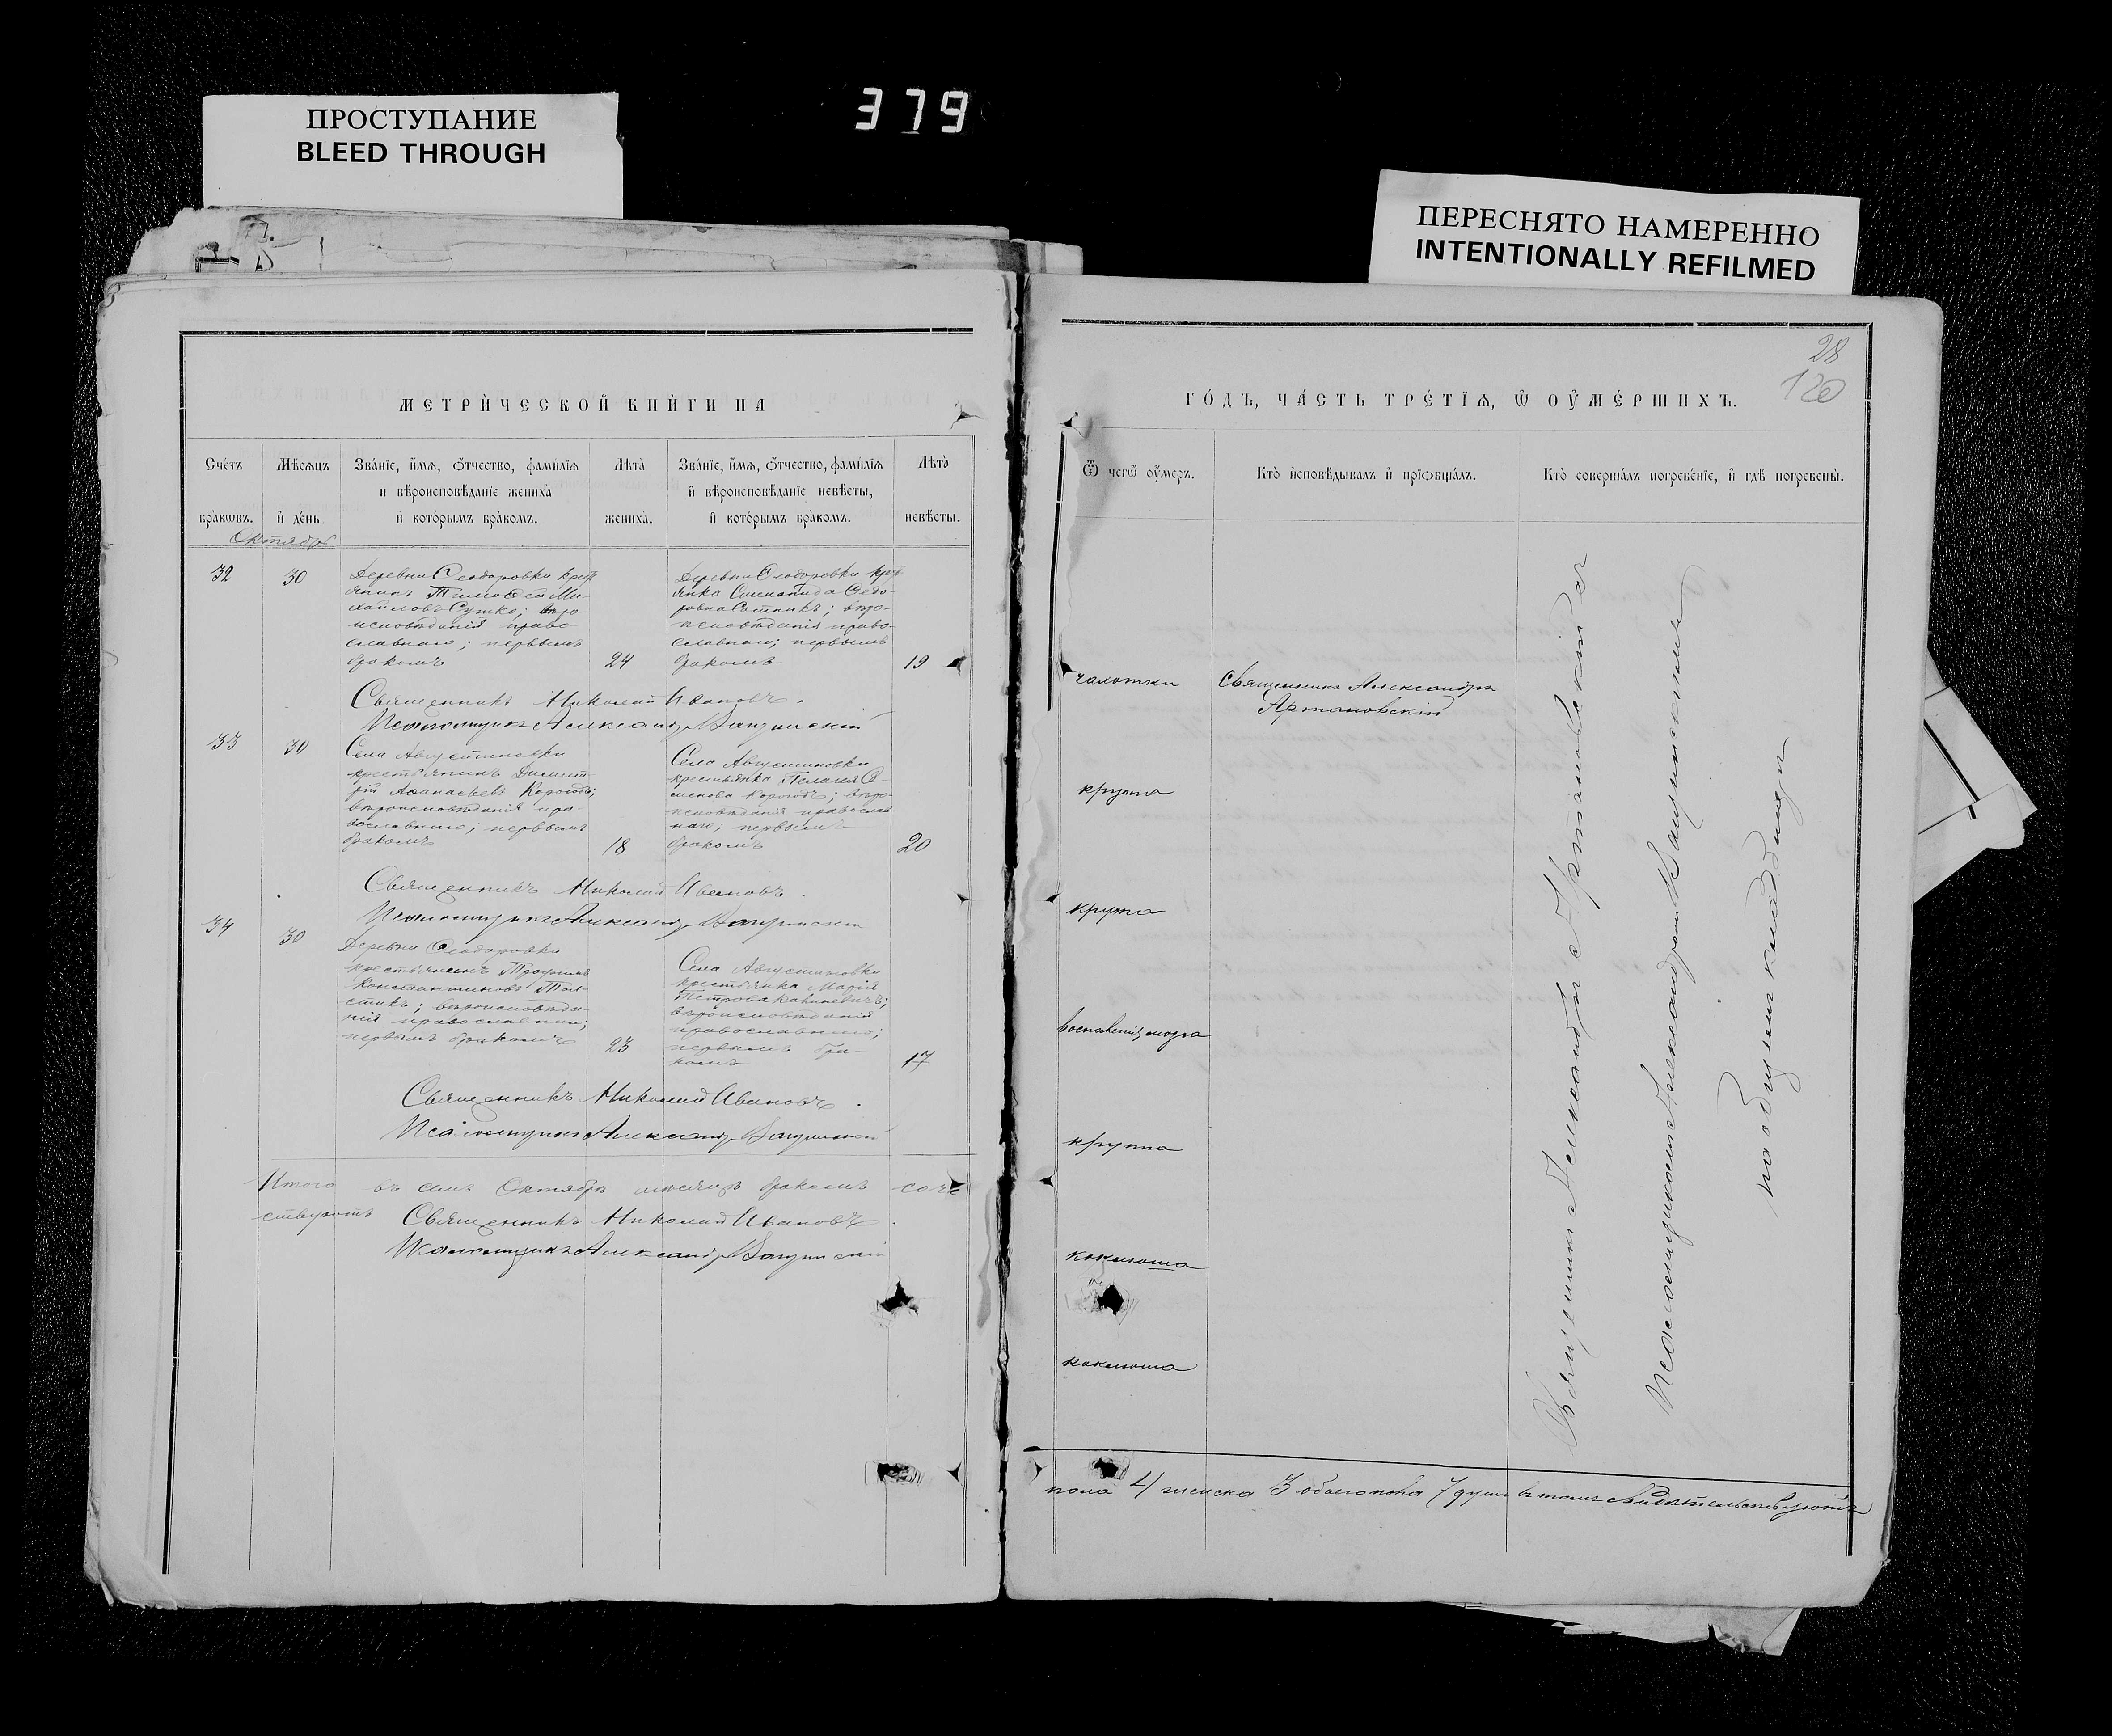 ПРОСТУПАНИЕ
BLEED THROUGH
379
ПЕРЕСНЯТО НАМЕРЕННО
INTENTIONALLY REFILMED
МЕТРИ́ЧЕСКОЙ КНИ́ГИ НА
Сче́тъ
бра́кѡвъ.
Мѣ́сѧцъ
и҆ де́нь
Зва́нїе, и҆́мѧ, ѻ҆́тчество, фами́лїѧ
и вѣроисповѣ́данїе жениха̀
и кото́рымъ бра́комъ.
Лѣта̀
жениха̀.
Зва́нїе, и҆́мѧ, ѻ҆́тчество, фами́лїѧ
и҆ вѣроисповѣ́данїе невѣ́сты,
и҆ кото́рымъ бра́комъ.
Лѣта̀
невѣ́сты.
Октябрь
32
30
Деревни Ѳеодоровки крест
янинъ Тимоѳей Ми-
хайловъ Сушко; вѣро-
исповѣданія право-
славнаго; первымъ
бракомъ
24
Деревни Ѳеодоровки крес
янка Ѳедо-
ровна Сотникъ; вѣро-
исповѣданія право-
славнаго; первымъ
бракомъ
19
Священникъ Николай Ивановъ.
Псаломщикъ Александръ
33
30
Села Августиновки
крестьянинъ Димит-
рій Аѳанасьевъ Коротъ;
вѣроисповѣданія пра-
вославнаго; первымъ
бракомъ
18
Села Августиновки
крестьянка Пелагея Се-
менова; вѣро-
исповѣданія православ-
наго; первымъ
бракомъ
20
Священникъ Николай Ивановъ.
Псаломщикъ Александръ
34
30
Деревни Ѳеодоровки
крестьянинъ Трофимъ
Константиновъ Тол-
стикъ; вѣроисповѣда-
нія православнаго;
первымъ бракомъ
23
Села Августиновки
крестьянка Марія
Петрова;
вѣроисповѣданія
православнаго;
первымъ бра-
комъ
17
Священникъ Николай Ивановъ.
Псаломщикъ Александръ
Итого въ семъ Октябрѣ мѣсяцѣ бракомъ соче
Священникъ Николай Ивановъ.
Псаломщикъ Александръ
28
120
ГО́ДЪ, ЧА́СТЬ ТРЕ́ТЇѦ, Ѡ ОУ҆МЕ́РШИХЪ.
Ѿ чегѡ̀ оу҆́меръ.
Кто̀ и҆сповѣ́дывалъ и҆ прїѡбща́лъ.
Кто̀ соверша́лъ погребе́нїе, и҆ гдѣ̀ погребены̀.
чахотки
Священникъ Александръ
Артановскій
крупа
крупа
воспаленія мозга
крупа
коклюша
коклюша
Священникъ Александръ Артановскій съ
Псаломщикомъ Александромъ
на общемъ кладбищѣ
пола 4 женска 3 обоего пола 7 душъ въ томъ свидѣтельствуютъ